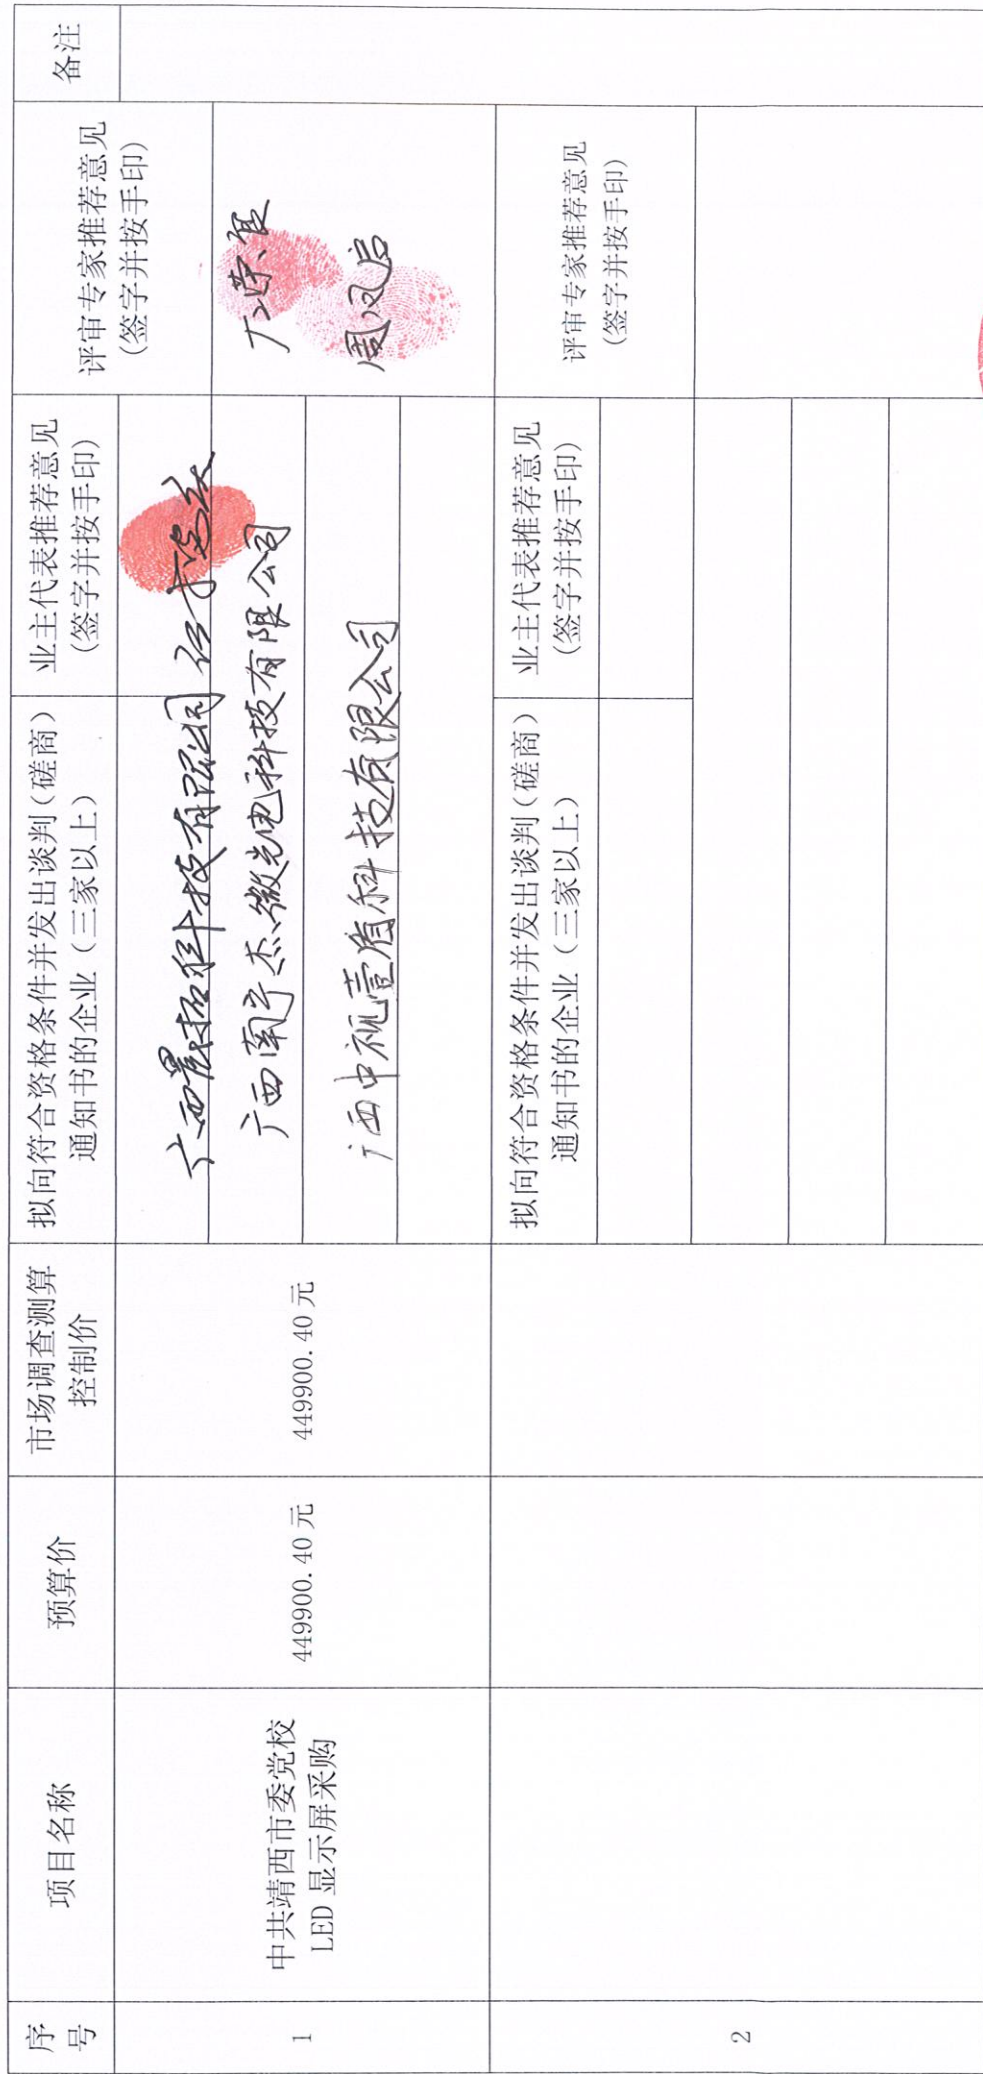 序号
项目名称
预算价
市场调查测算
控制价
拟向符合资格条件并发出谈判（磋商）
通知书的企业（三家以上）
业主代表推荐意见
（签字并按手印）
评审专家推荐意见
（签字并按手印）
备注
1
中共靖西市委党校
LED 显示屏采购
449900.40 元
449900.40 元
广西晨拓科技有限公司
广西南宁杰微光电科技有限公司
广西中视壹盾科技有限公司
周凤启
拟向符合资格条件并发出谈判（磋商）
通知书的企业（三家以上）
业主代表推荐意见
（签字并按手印）
评审专家推荐意见
（签字并按手印）
2